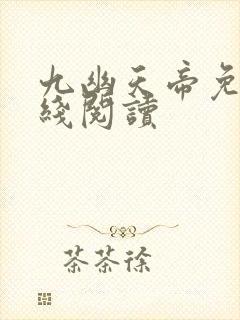 九幽天帝免
綫閱讀
茶茶徐